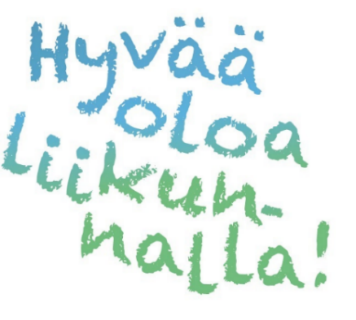 Hyvää
oloa
liikun-
nalla!